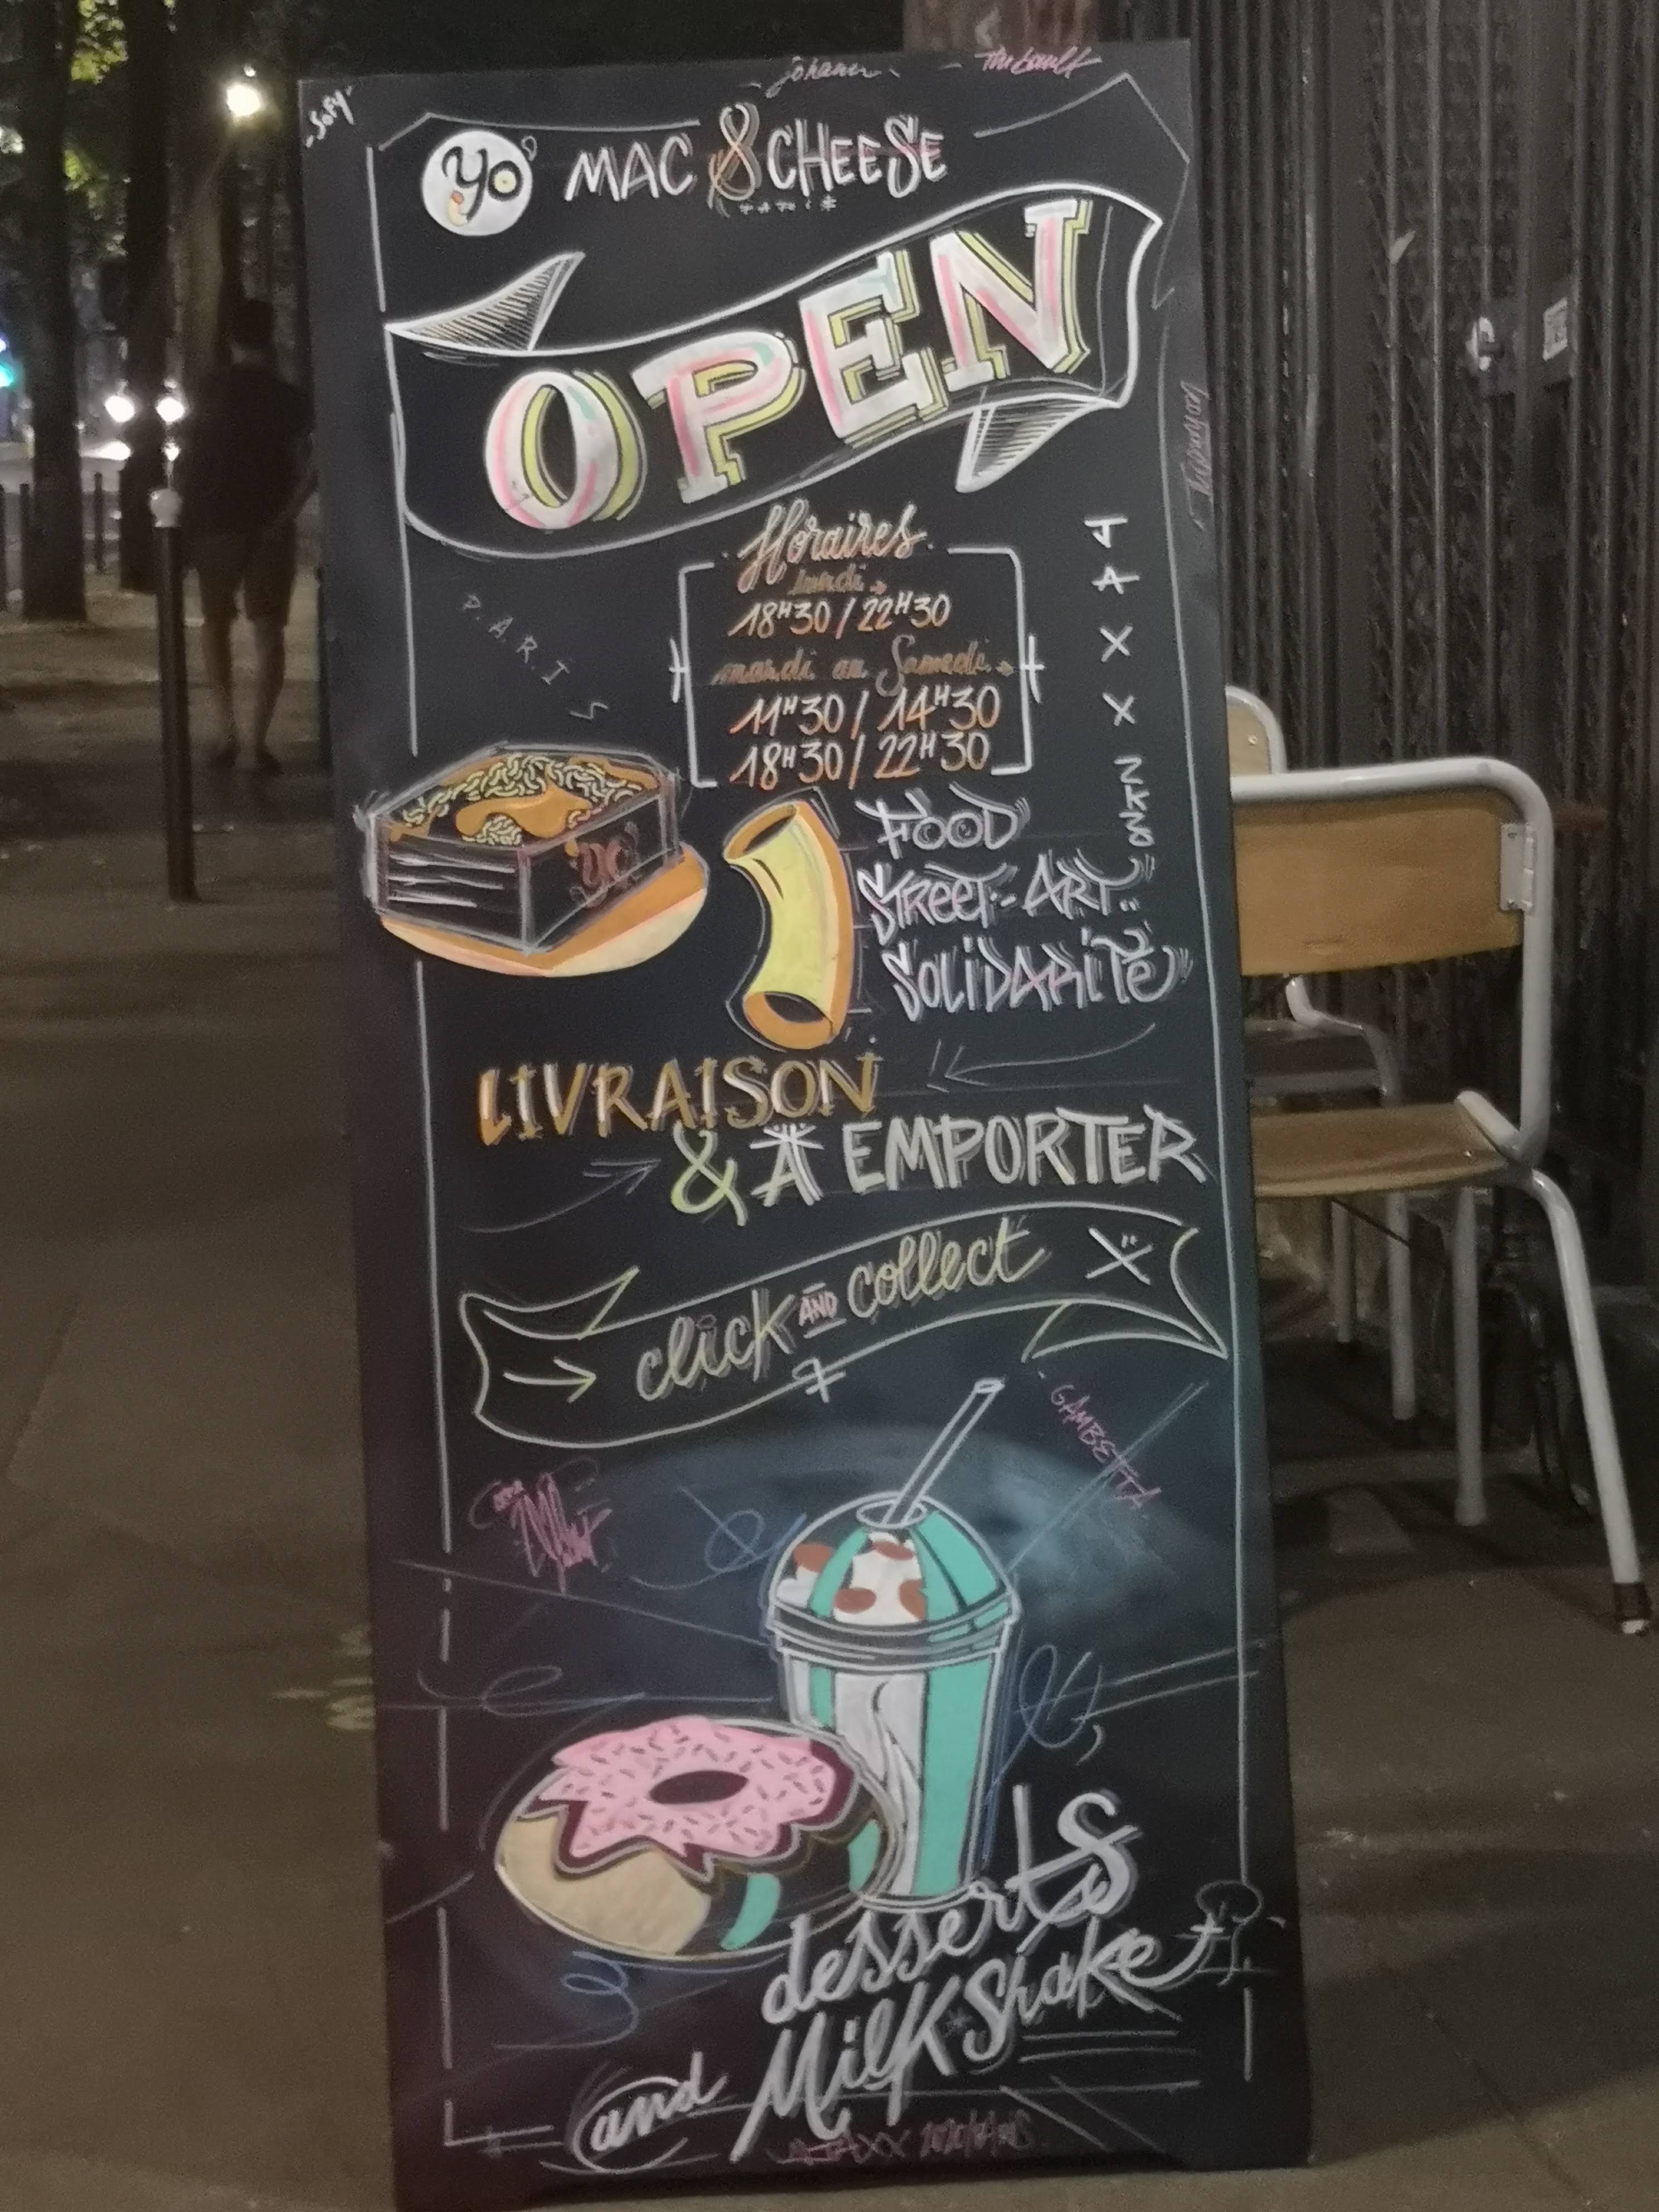 -SOFY-
johann
Thibault
yo
MAC & CHEESE
PARIS
OPEN
Horaires
lundi
18H30 / 22H30
mardi au Samedi
11H30 / 14H30
18H30 / 22H30
P.A.R.I.S
FOOD
STREET-ART
SOLIDARITÉ
LIVRAISON
& À EMPORTER
click AND collect
GAMBETTA
desserts
and MilkShake